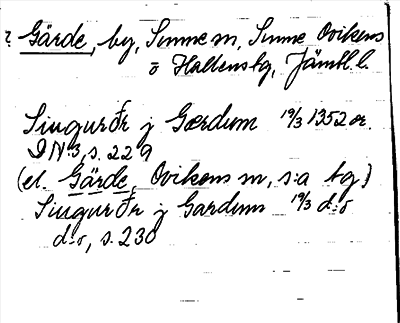 ? Gärde, by, Sunne sn, Sunne Ovikens
o Hallens tg, Jämtl. l.
Siugurðr j Gærdum 19/3 1352 or.
DN:3, s. 229
(el. Gärde, Ovikens sn, s:a tg)
Siugurðr j Gardum 19/3 d:o
d:o, s. 230